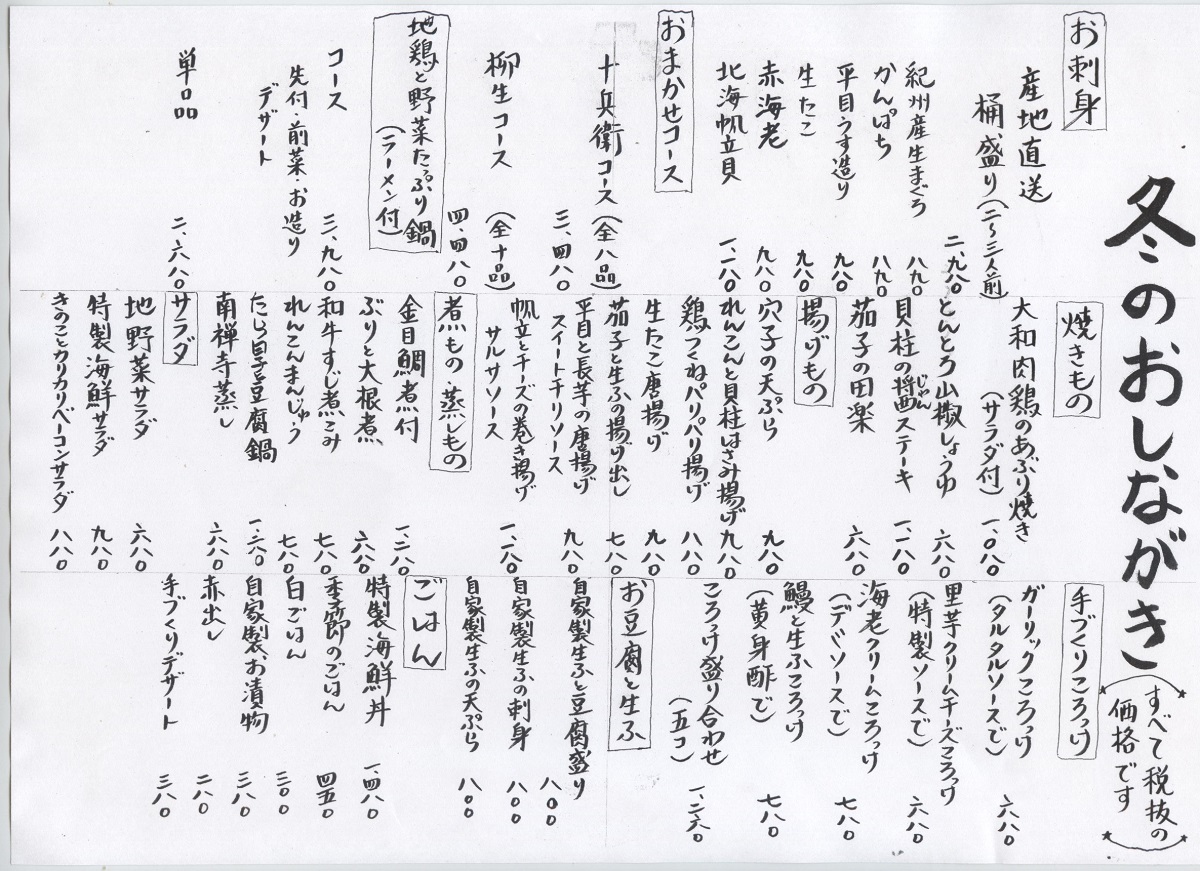 冬のおしながき
すべて税抜の
価格です
お刺身
産地直送
桶盛り(二〜三人前)
二、九八〇
紀州産生まぐろ
八九〇
かんぱち
八九〇
平目うす造り
九八〇
生たこ
九八〇
赤海老
九八〇
北海帆立貝
一、一八〇
おまかせコース
十兵衛コース(全八品)
三、四八〇
柳生コース(全十品)
四、四八〇
地鶏と野菜たっぷり鍋
(ラーメン付)
コース
三、九八〇
先付・前菜・お造り
デザート
単品
二、六八〇
焼きもの
大和肉鶏のあぶり焼き
(サラダ付)
一、〇八〇
とんとろ山椒しょうゆ
六八〇
貝柱の醤じゃんステーキ
一、一八〇
茄子の田楽
六八〇
揚げもの
穴子の天ぷら
九八〇
れんこんと貝柱はさみ揚げ
九八〇
鶏つくねパリパリ揚げ
八八〇
生たこ唐揚げ
九八〇
茄子と生ふの揚げ出し
七八〇
平目と長芋の唐揚げ
スイートチリソース
九八〇
帆立とチーズの巻き揚げ
サルサソース
一、一八〇
煮もの 蒸しもの
金目鯛煮付
一、二八〇
ぶりと大根煮
六八〇
和牛すじ煮こみ
七八〇
れんこんまんじゅう
七八〇
たら白子豆腐鍋
一、二八〇
南禅寺蒸し
六八〇
サラダ
地野菜サラダ
六八〇
特製海鮮サラダ
九八〇
きのことカリカリベーコンサラダ
八八〇
手づくりころっけ
ガーリックころっけ
(タルタルソースで)
六八〇
里芋クリームチーズころっけ
(特製ソースで)
六八〇
海老クリームころっけ
(デミソースで)
七八〇
鰻と生ふころっけ
(黄身酢で)
七八〇
ころっけ盛り合わせ
(五コ)
一、二六〇
お豆腐と生ふ
自家製生ふと豆腐盛り
八八〇
自家製生ふの刺身
八〇〇
自家製生ふの天ぷら
八〇〇
ごはん
特製海鮮丼
一、四八〇
季節のごはん
四五〇
白ごはん
三〇〇
自家製お漬物
三八〇
赤出し
二八〇
手づくりデザート
三八〇